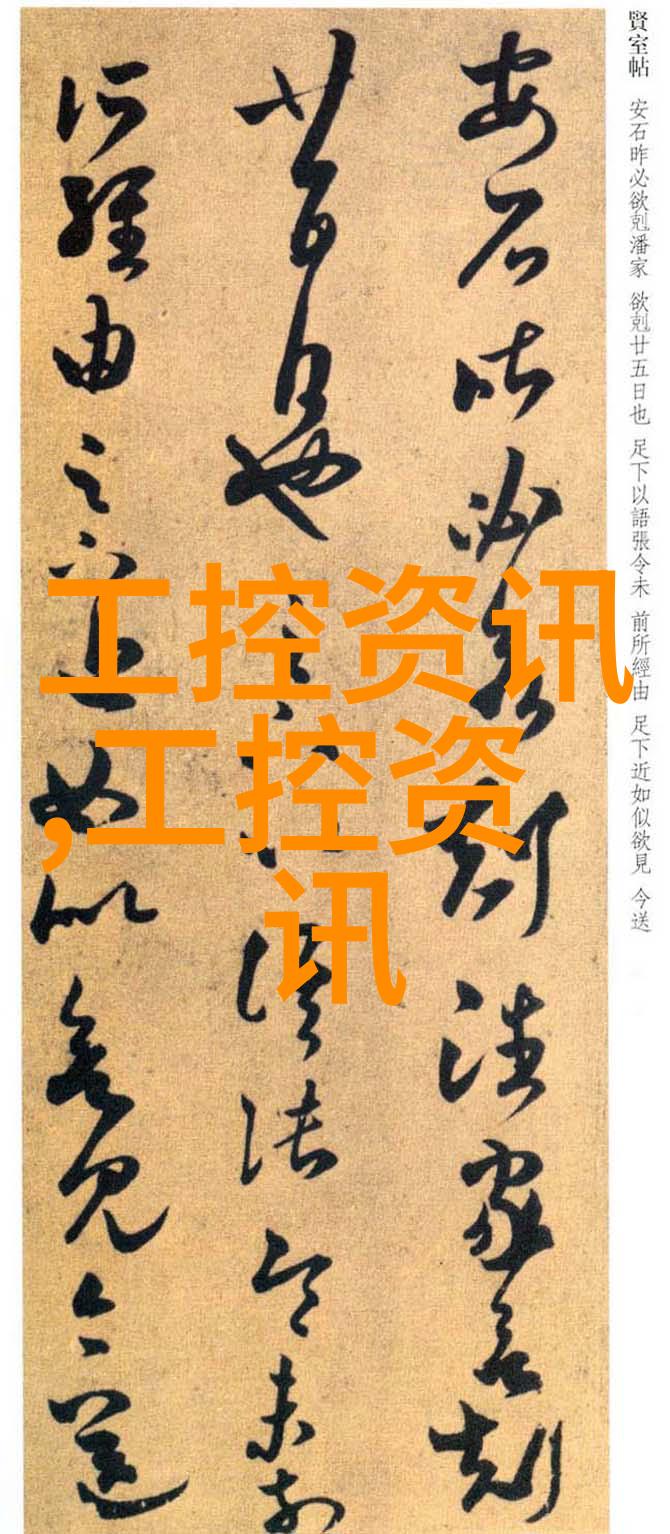 賢室帖 安石昨必欲剋潘家 欲剋廿五日也 足下以語張令未 前所經由 足下近如似欲見 今送
安石昨必欲剋潘家欲剋
廿五日也足下以語張令未前
所經由足下近如似欲見今送
工控资讯
,工控资
讯